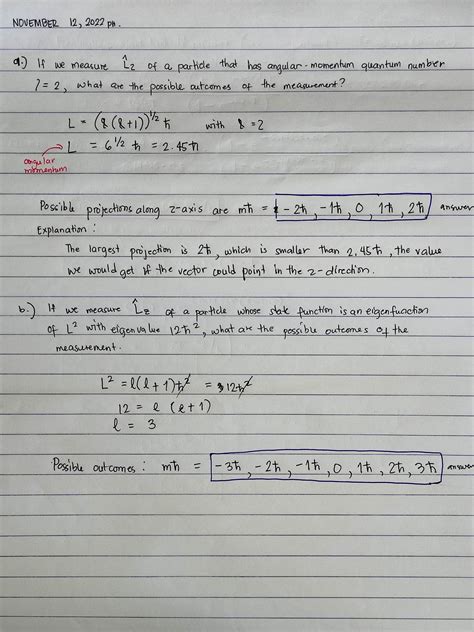 NOVEMBER 12, 2022 pm.
a.) If we measure L̂z of a particle that has angular-momentum quantum number
l = 2, what are the possible outcomes of the measurement?
L = (ℓ(ℓ+1))^1/2 ħ with ℓ = 2
L = 6^1/2 ħ = 2.45ħ
angular
momentum
Possible projections along z-axis are mħ = -2ħ, -1ħ, 0, 1ħ, 2ħ answer
Explanation :
The largest projection is 2ħ, which is smaller than 2.45ħ, the value
we would get if the vector could point in the z-direction.
b.) If we measure L̂z of a particle whose state function is an eigenfunction
of L² with eigenvalue 12ħ², what are the possible outcomes of the
measurement.
L² = ℓ(ℓ+1)ħ² = 12ħ²
12 = ℓ (ℓ+1)
ℓ = 3
Possible outcomes : mħ = -3ħ, -2ħ, -1ħ, 0, 1ħ, 2ħ, 3ħ answer